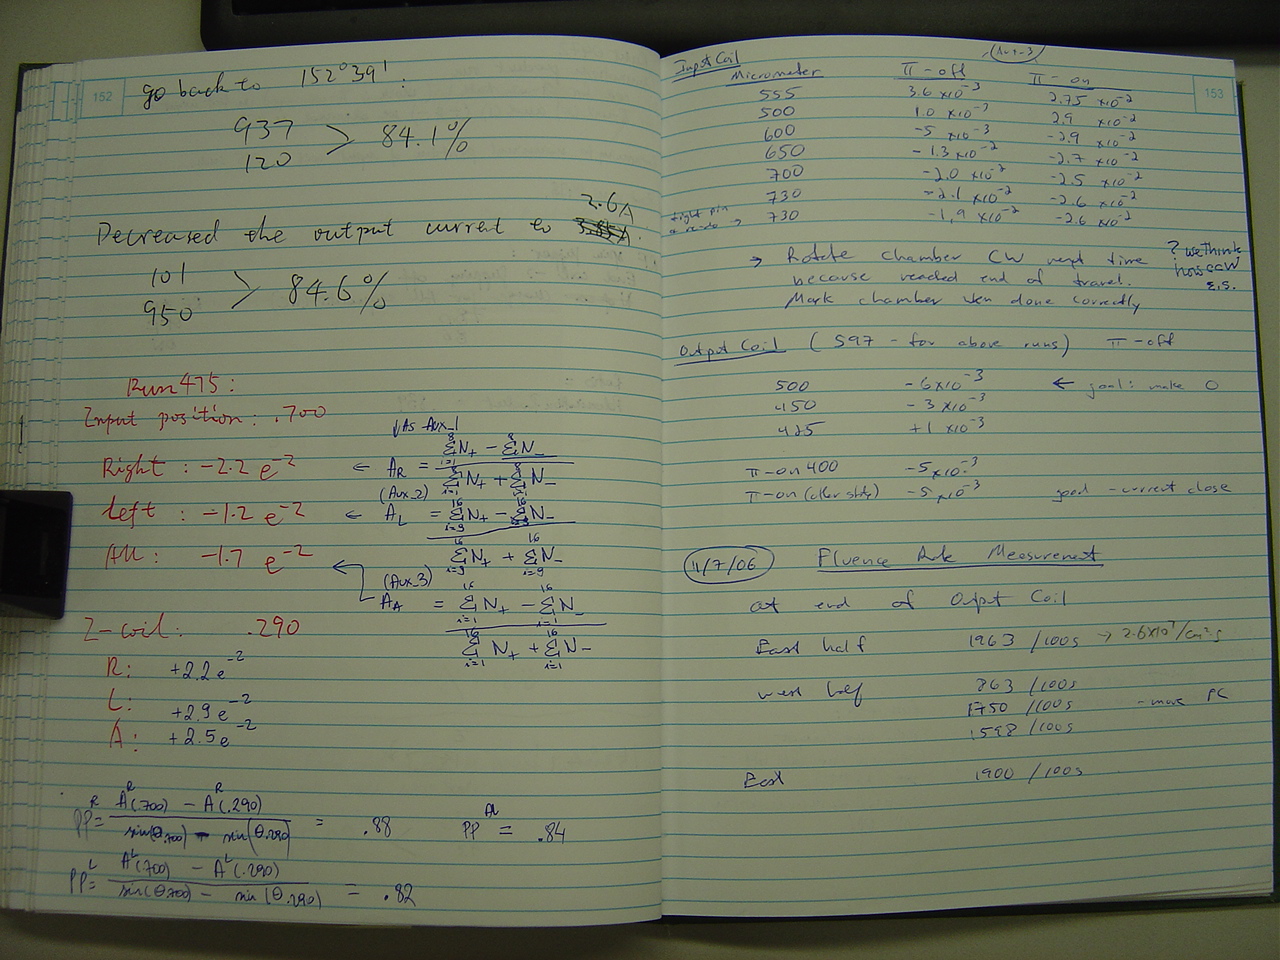 152
go back to 152°39'.
937
120 > 84.1%
2.6A
Decreased the output current to
101
950 > 84.6%
Run 475:
Input position: .700
Right: -2.2 e^-2
Left: -1.2 e^-2
All: -1.7 e^-2
As Aux_1
← A_R = (Σ_{i=1}^{8} N_+ - Σ_{i=1}^{8} N_-) / (Σ_{i=1}^{8} N_+ + Σ_{i=1}^{8} N_-)
(Aux_2)
← A_L = (Σ_{i=9}^{16} N_+ - Σ_{i=9}^{16} N_-) / (Σ_{i=9}^{16} N_+ + Σ_{i=9}^{16} N_-)
(Aux_3)
A_A = (Σ_{i=1}^{16} N_+ - Σ_{i=1}^{16} N_-) / (Σ_{i=1}^{16} N_+ + Σ_{i=1}^{16} N_-)
Z-coil: .290
R: +2.2 e^-2
L: +2.9 e^-2
A: +2.5 e^-2
PP^R = (A^R(.700) - A^R(.290)) / (sin(θ.700) - sin(θ.290)) = .88
PP^AL = .84
PP^L = (A^L(.700) - A^L(.290)) / (sin(θ.700) - sin(θ.290)) = .82
153
Input Coil
(Aux-3)
Micrometer π-off π-on
555 3.6 x10^-3 2.75 x10^-2
500 1.0 x10^-3 2.9 x10^-2
600 -5 x10^-3 -2.9 x10^-2
650 -1.3 x10^-2 -2.7 x10^-2
700 -2.0 x10^-2 -2.5 x10^-2
730 -2.1 x10^-2 -2.6 x10^-2
730 -1.9 x10^-2 -2.6 x10^-2
→ Rotate chamber CW next time
because reached end of travel.
Mark chamber wen done correctly
? we think
now CCW
E.S.
Output Coil (597 - for above runs) π-off
500 -6x10^-3 ← goal: make 0
450 -3 x10^-3
425 +1 x10^-3
π-on 400 -5 x10^-3
π-on -5 x10^-3 good - current close
11/7/06 Fluence Rate Measurement
at end of Output Coil
East half 1963 /100s → 2.6x10^7/cm² s
west half 863 /100s
1750 /100s - move PC
1598 /100s
East 1900 /100s